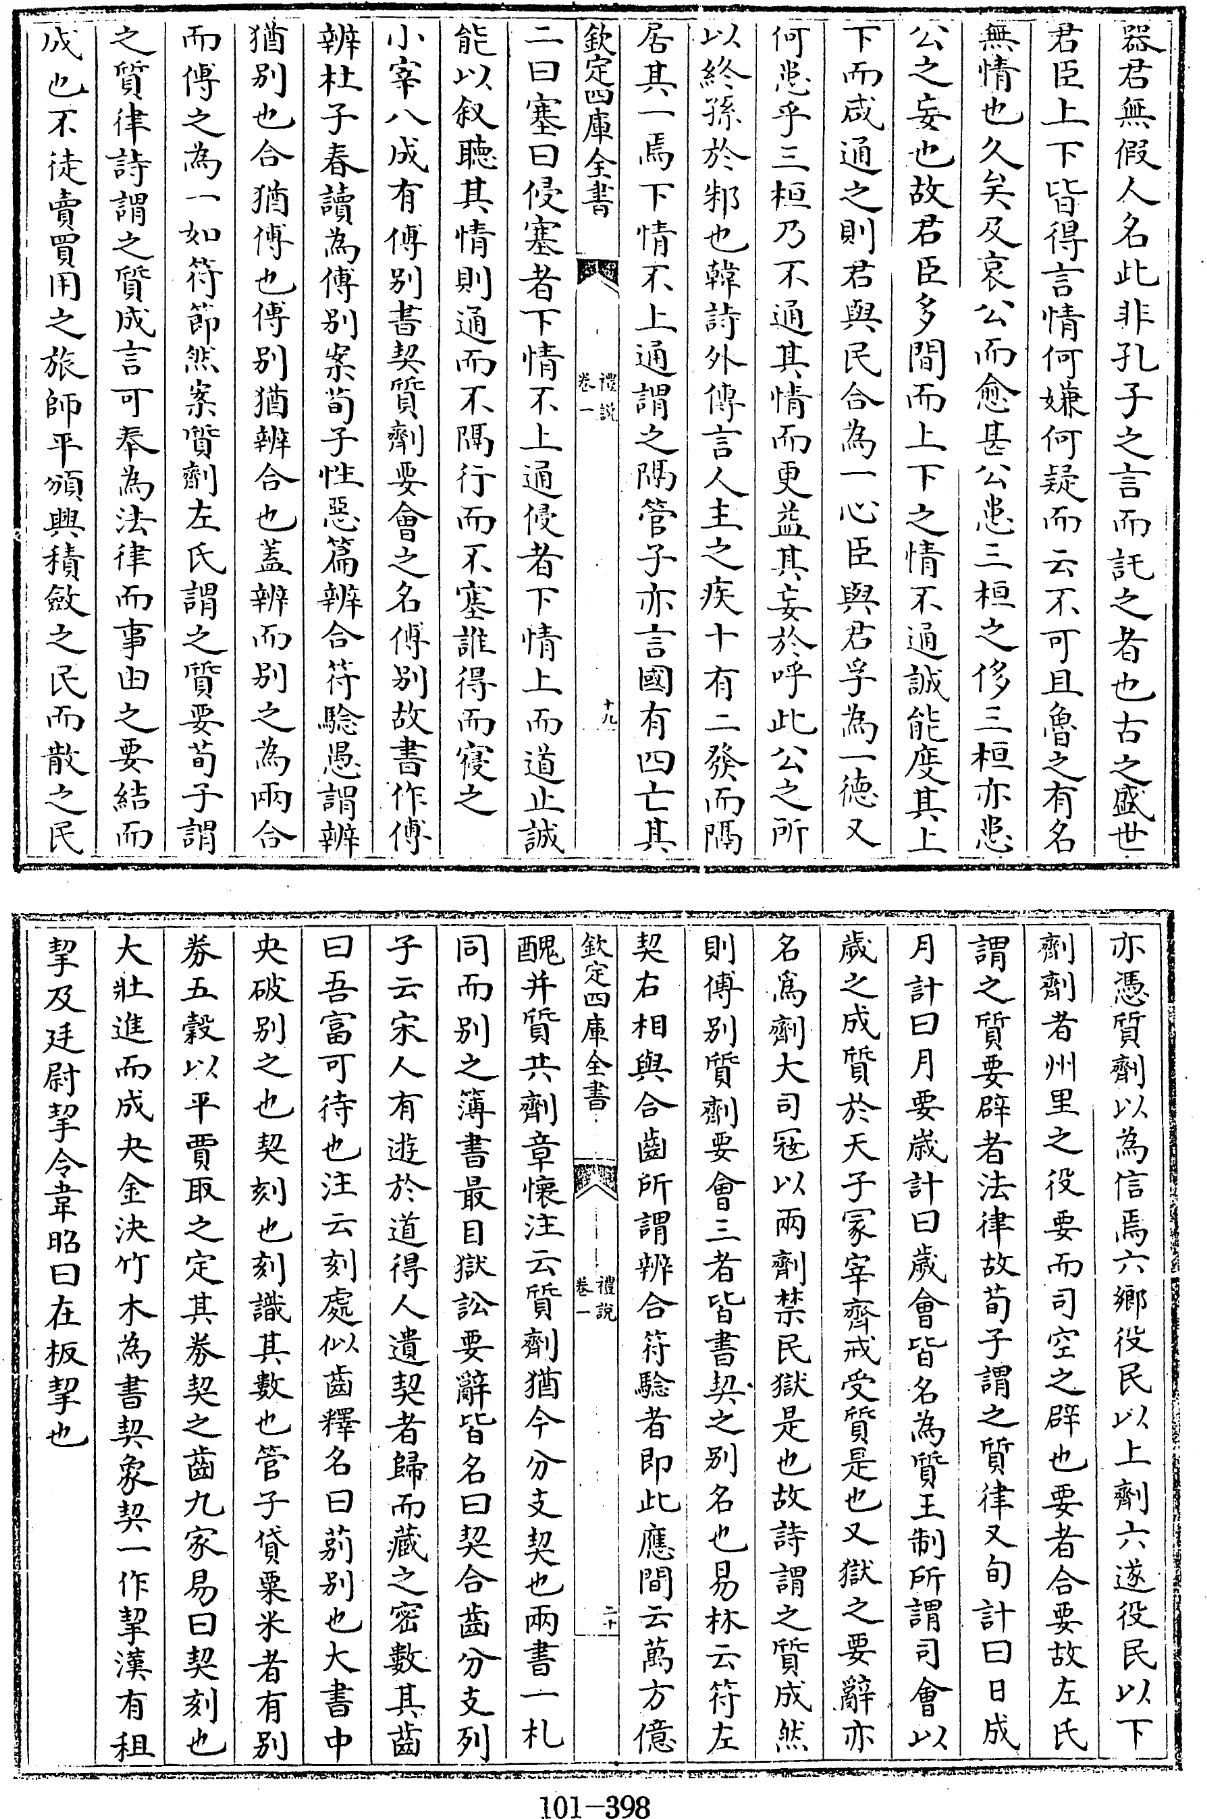 器君無假人名此非孔子之言而託之者也古之盛世
君臣上下皆得言情何嫌何疑而云不可且魯之有名
無情也久矣及哀公而愈甚公患三桓之侈三桓亦患
公之妄也故君臣多間而上下之情不通誠能度其上
下而咸通之則君與民合為一心臣與君孚為一德又
何患乎三桓乃不通其情而更益其妄於呼此公之所
以終孫於邾也韓詩外傳言人主之疾十有二發而隔
居其一焉下情不上通謂之隔管子亦言國有四亡其
欽定四庫全書
禮說
卷一
十九
二曰塞曰侵塞者下情不上通侵者下情上而道止誠
能以叙聽其情則通而不隔行而不塞誰得而寑之
小宰八成有傅别書契質劑要會之名傅别故書作傅
辨杜子春讀為傅别案荀子性惡篇辨合符驗愚謂辨
猶别也合猶傅也傅别猶辨合也蓋辨而别之為兩合
而傅之為一如符節然案質劑左氏謂之質要荀子謂
之質律詩謂之質成言可奉為法律而事由之要結而
成也不徒賣買用之旅師平頒興積斂之民而散之民
亦憑質劑以為信焉六鄉役民以上劑六遂役民以下
劑劑者州里之役要而司空之辟也要者合要故左氏
謂之質要辟者法律故荀子謂之質律又旬計曰日成
月計曰月要歲計曰歲會皆名為質王制所謂司會以
歲之成質於天子冡宰齊戒受質是也又獄之要辭亦
名爲劑大司冦以兩劑禁民獄是也故詩謂之質成然
則傅别質劑要會三者皆書契之别名也易林云符左
契右相與合齒所謂辨合符驗者即此應間云萬方億
欽定四庫全書
禮說
卷一
二十
醜并質共劑章懷注云質劑猶今分支契也兩書一札
同而别之簿書最目獄訟要辭皆名曰契合齒分支列
子云宋人有遊於道得人遺契者歸而藏之密數其齒
曰吾富可待也注云刻處似齒釋名曰莂别也大書中
央破别之也契刻也刻識其數也管子貸粟米者有别
券五穀以平賈取之定其券契之齒九家易曰契刻也
大壯進而成夬金決竹木為書契象契一作挈漢有租
挈及廷尉挈令韋昭曰在板挈也
101-398